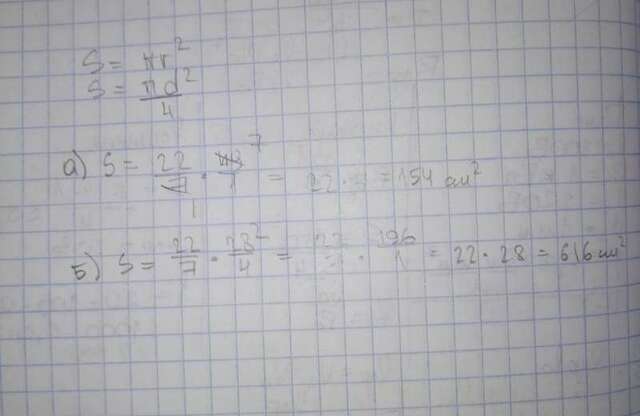 S = πr²
S = πd²/4
а) S = 22/7 · 49/1 = 22 · 7 = 154 см²
б) S = 22/7 · 28²/4 = 22/7 · 196/1 = 22 · 28 = 616 см²